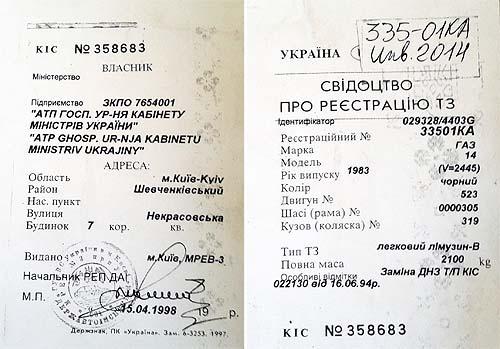 КІС № 358683
ВЛАСНИК
Міністерство
Підприємство ЗКПО 7654001
"АТП ГОСП. УР-НЯ КАБІНЕТУ
МІНІСТРІВ УКРАЇНИ"
"ATP GHOSP. UR-NJA KABINETU
MINISTRIV UKRAJINY"
АДРЕСА:
Область м.Київ-Kyiv
Район Шевченківський
Нас. пункт
Вулиця Некрасовська
Будинок 7 кор. кв.
Видано м,Київ, МРЕВ-3
Начальник РЕП ДАІ
М.П. 15.04.1998 19 р.
Держзнак, ПК «Україна». Зам. 6-3253. 1997.
335-01КА
Инв.2014
УКРАЇНА
СВІДОЦТВО
ПРО РЕЄСТРАЦІЮ ТЗ
Ідентифікатор 029328/4403G
Реєстраційний № 33501КА
Марка ГАЗ
Модель 14
Рік випуску 1983 (V=2445)
Колір чорний
Двигун № 523
Шасі (рама) № 0000305
Кузов (коляска) № 319
Тип ТЗ легковий лімузин-В
Повна маса 2100 kg
Особливі відмітки Заміна ДНЗ Т/П КІС
022130 від 16.06.94р.
КІС № 358683